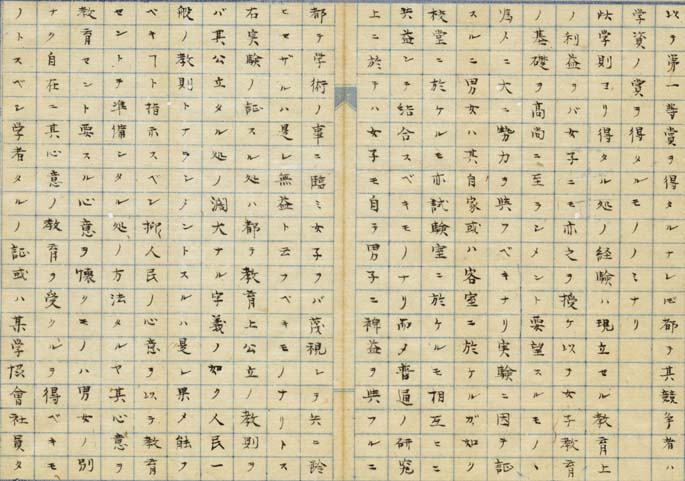 以テ第一等賞ヲ得タルナレ𪜈都テ其競争者ハ
学資ノ賞ヲ得タルモノノミナリ
此学則ヨリ得タル処ノ経験ハ現立セル教育上
ノ利益ヲバ女子ニモ亦之ヲ授ケ以テ女子教育
ノ基礎ヲ高尚ニ至ラシメント要望スルモノヽ
為メニ大ニ勢力ヲ與フベキナリ実験ニ因テ証
スルニ男女ハ其自家或ハ客室ニ於ケルガ如ク
校堂ニ於ケルモ亦試験室ニ於ケルモ相互ニ
共益シテ結合スベキモノナリ而〆普通ノ研究
上ニ於テハ女子モ自ラ男子ニ裨益ヲ與フルニ
都テ学術ノ事ニ臨ミ女子ヲバ蔑視シテ共ニ齢
ヒセザルハ是レ無益ト云フベキモノナリトス
右実験ノ証スル処ハ都テ教育上公立ノ教則ヲ
バ其公立タル処ノ濶大ナル字義ノ如ク人民一
般ノ教則トナラシメントスルハ是レ果〆能ク
ベキヿト指示スベシ抑人民ノ心意ヲ以テ教育
セントテ準備シタル処ノ方法タルヤ其心意ヲ
教育セント要スル心意ヲ懐クモノハ男女ノ別
ナク自在ニ其心意ノ教育ヲ受クルヲ得ベキモ
ノトスベシ学者タルノ証或ハ某学協會社員タ